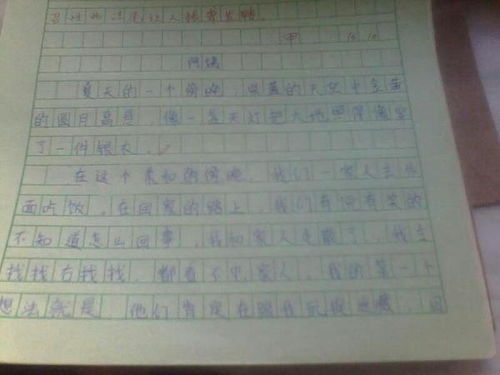 甲
夏天的一个傍晚,
的天空中金黄
的圆月高悬,像一盏天灯把大地照得像穿
了一件银衣。
在这个美如的傍晚,我们一家人去外
面吃饭,在回家的路上,我们有说有笑的
不知道怎么回事,我和家人走散了,我左
找找右找找,都看不见家人,我的第一个
想法就是 他们肯定在跟我玩捉迷藏,因